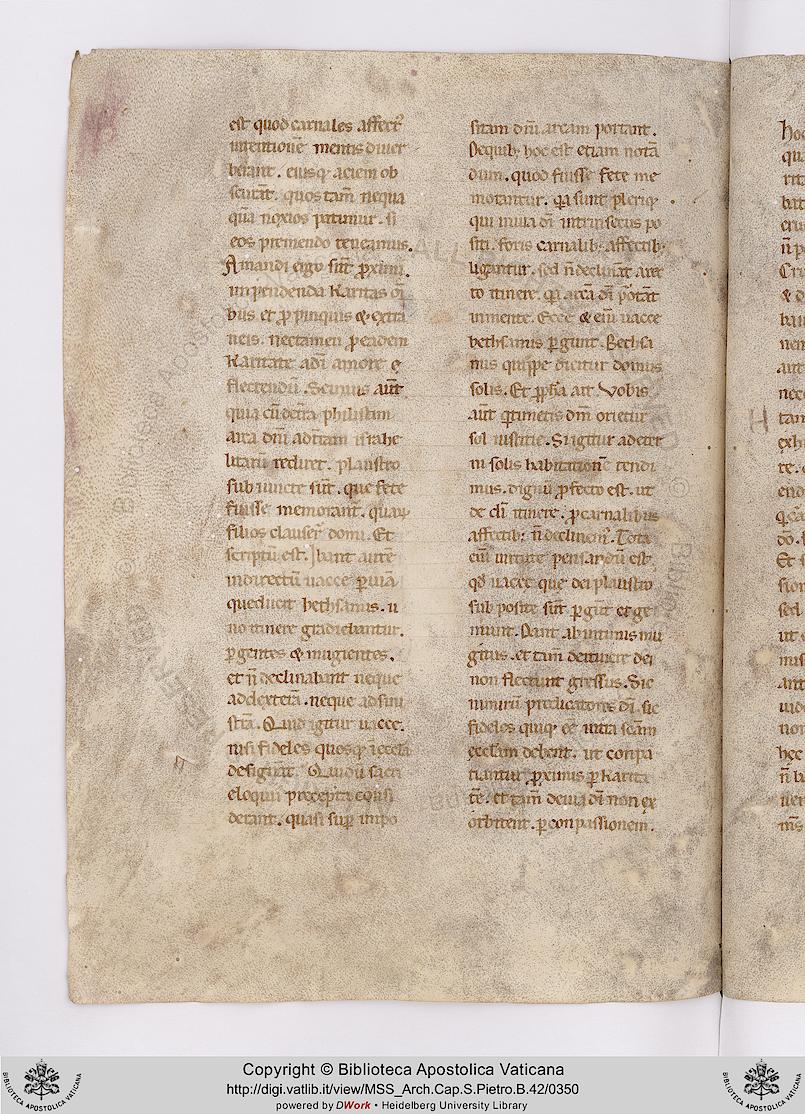 est quod carnales affect᷒
intentionē mentis diver
berant. eiusq; aciem ob
scurāt. quos tam̄ nequa
quā noxios patimur. si
eos premendo teneamus.
Amandi ergo sūt ꝓximi.
impendenda karitas om̄i
bus et ꝓpinquis & extra
neis. nec tamen ꝓ eadem
karitate a dī amore ę
flectendū. Scimus aūt
quia cū de tr̄a philistim
arca dn̄i ad tr̄am israhe
litarū rediret. plaustro
sub iuncte sūt. que fete
fuisse memorant̄. quaꝝ
filios clauser̄ domi. Et
scriptū est. Ibant autē
in directū vacce ꝑ viā
que ducit bethsamis. u
no itinere gradiebantur.
ꝑgentes & mugientes.
et n̄ declinabant neque
ad dexterā. neque ad sini
strā. Quid igitur vacce.
nisi fideles quosq; ī eccła
designāt. Qui dū sacri
eloquii precepta consi
derant. quasi suꝑ impo
sitam dn̄i arcam portant.
De quib; hoc est etiam notā
dum. quod fuisse fete me
morantur. qa sunt pleriq;
qui in via dī intrinsecus po
siti. foris carnalib; affectib;
ligantur. sed n̄ declināt a rec
to itinere. qa arcā dī portāt
in mente. Ecce & enī vacce
bethsamis ꝑgunt. Bethsa
mis quippe dicitur domus
solis. Et ꝓpha ait. Vobis
aūt q timetis dn̄m orietur
sol iustitie. Si igitur ad eter
ni solis habitationē tendi
mus. dignū ꝓfecto est. ut
de dī itinere. ꝓ carnalibus
affectib; n̄ declinem᷒. Tota
enī virtute pensandū est.
qd vacce que dei plaustro
sub posite sūt ꝑgūt et ge
munt. Dant ab intimis mu
gitus. et tam̄ de itinere dei
non flectunt gressus. Sic
nimirū predicatores dī sic
fideles quiq; eē intra scām
ęcclam debent. ut conpa
tiantur ꝓximis ꝑ karita
tē. et tam̄ de via dī non ex
orbitent. ꝑ conpassionem.
H
Copyright © Biblioteca Apostolica Vaticana
http://digi.vatlib.it/view/MSS_Arch.Cap.S.Pietro.B.42/0350
powered by DWork • Heidelberg University Library